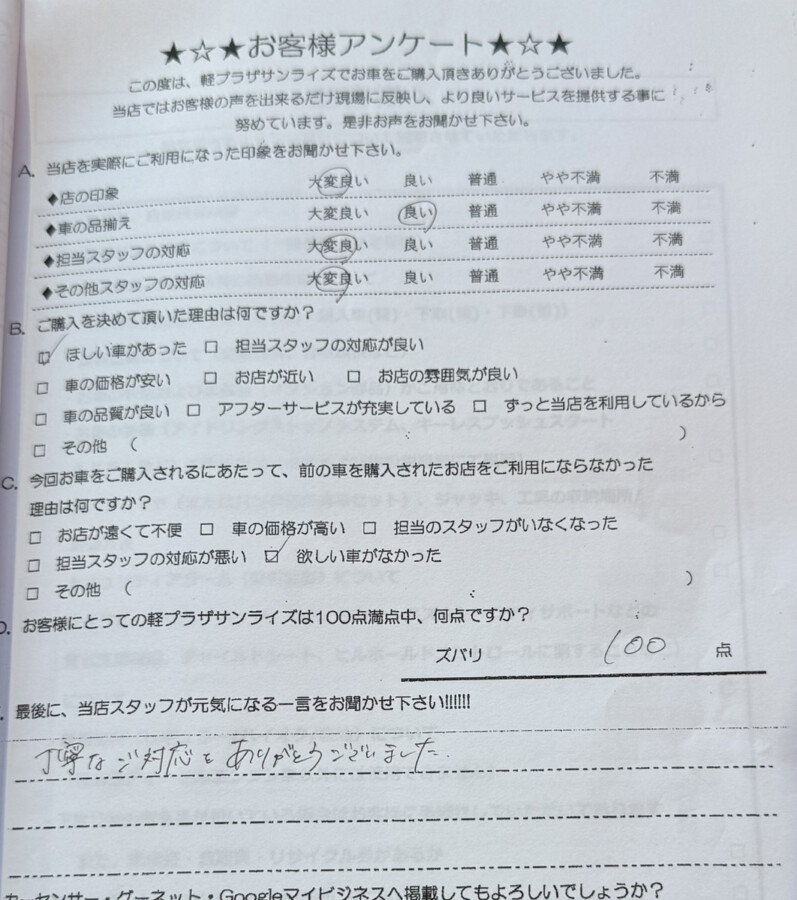 ★☆★お客様アンケート★☆★
この度は、軽プラザサンライズでお車をご購入頂きありがとうございました。
当店ではお客様の声を出来るだけ現場に反映し、より良いサービスを提供する事に
努めています。是非お声をお聞かせ下さい。
A. 当店を実際にご利用になった印象をお聞かせ下さい。
◆店の印象 大変良い 良い 普通 やや不満 不満
◆車の品揃え 大変良い 良い 普通 やや不満 不満
◆担当スタッフの対応 大変良い 良い 普通 やや不満 不満
◆その他スタッフの対応 大変良い 良い 普通 やや不満 不満
B. ご購入を決めて頂いた理由は何ですか？
☑ ほしい車があった □ 担当スタッフの対応が良い
□ 車の価格が安い □ お店が近い □ お店の雰囲気が良い
□ 車の品質が良い □ アフターサービスが充実している □ ずっと当店を利用しているから
□ その他 （ ）
C. 今回お車をご購入されるにあたって、前の車を購入されたお店をご利用にならなかった
理由は何ですか？
□ お店が遠くて不便 □ 車の価格が高い □ 担当のスタッフがいなくなった
□ 担当スタッフの対応が悪い ☑ 欲しい車がなかった
□ その他 （ ）
D. お客様にとっての軽プラザサンライズは100点満点中、何点ですか？
ズバリ 100 点
最後に、当店スタッフが元気になる一言をお聞かせ下さい!!!!!!
丁寧なご対応をありがとうございました.
カーセンサー・グーネット・Googleマイビジネスへ掲載してもよろしいでしょうか？